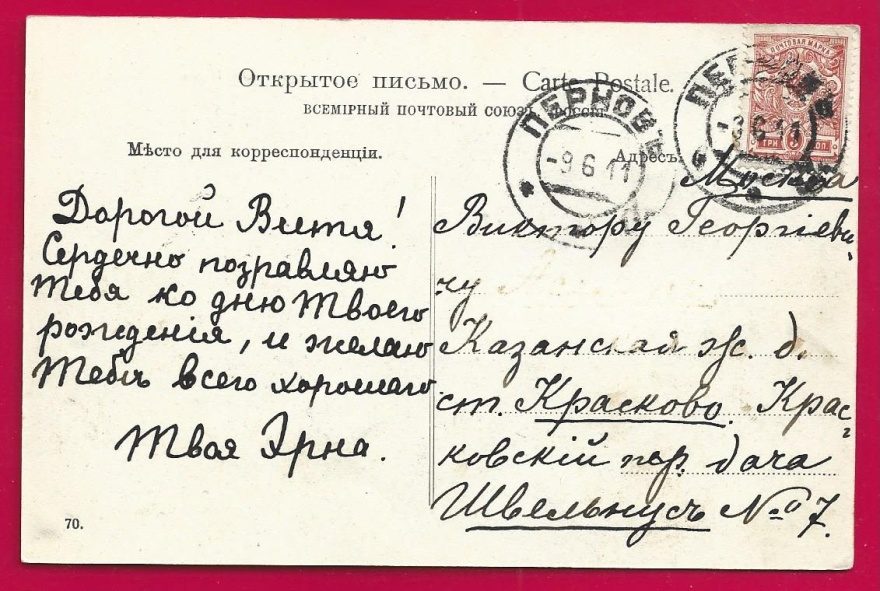 Открытое письмо. — Carte Postale.
ВСЕМІРНЫЙ ПОЧТОВЫЙ СОЮЗЪ РОССІЯ
Мѣсто для корреспонденціи.
Адресъ.
ПЕРНОВЪ
-9 6 11
ПЕР
-9 6 11
ПОЧТОВАЯ МАРКА
ТРИ 3 КОП
Дорогой Витя!
Сердечно поздравляю
Тебя ко дню Твоего
рожденія, и желаю
Тебѣ всего хорошаго
Твоя Эрна.
Москва
Виктору Георгіеви-
чу
Казанская ж. д.
ст. Красково. Крас-
ковскій пер. дача
Швельнусъ № 7.
70.